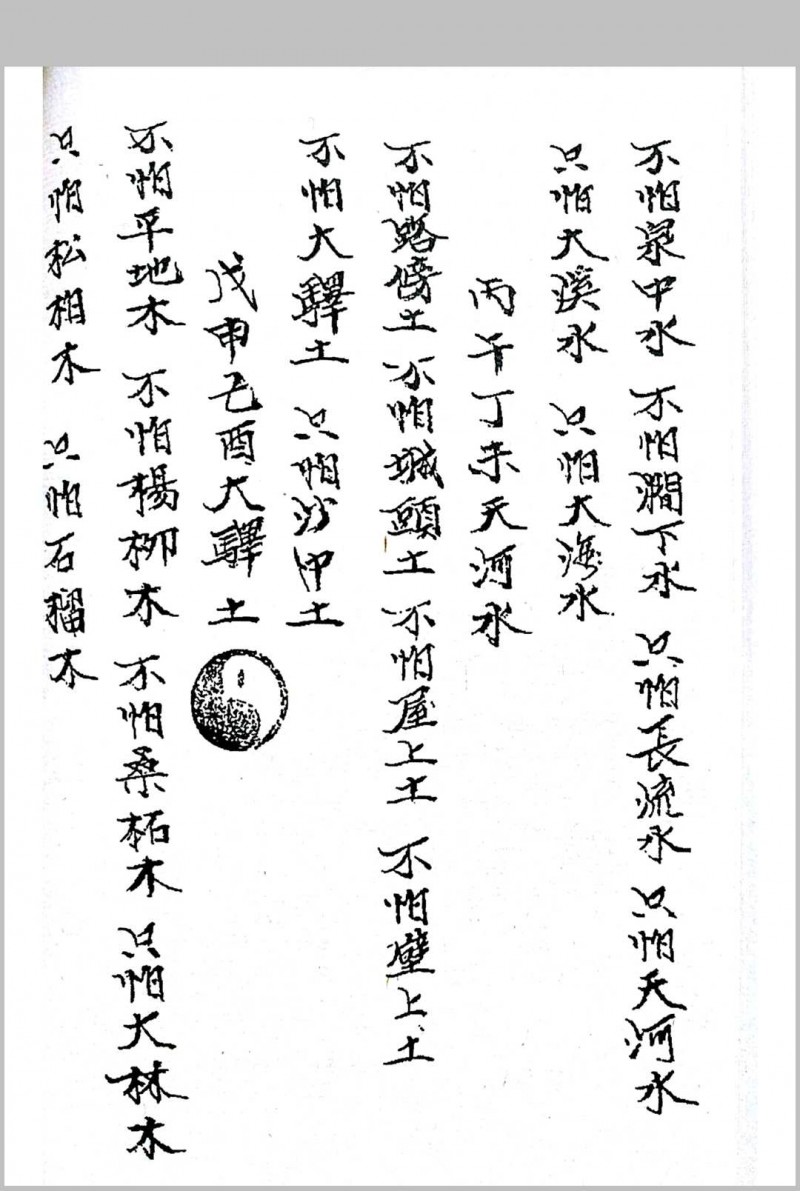 不怕泉中水 不怕澗下水 只怕長流水 只怕天河水
只怕大溪水 只怕大海水
丙午丁未天河水
不怕路傍土 不怕城頭土 不怕屋上土 不怕壁上土
不怕大驛土 只怕沙中土
戊申己酉大驛土
不怕平地木 不怕楊柳木 不怕桑柘木 只怕大林木
只怕松柏木 只怕石榴木